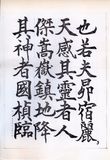 也若夫昴宿麗
天感其靈者人
傑嵩嶽鎮地降
其神者國楨臨